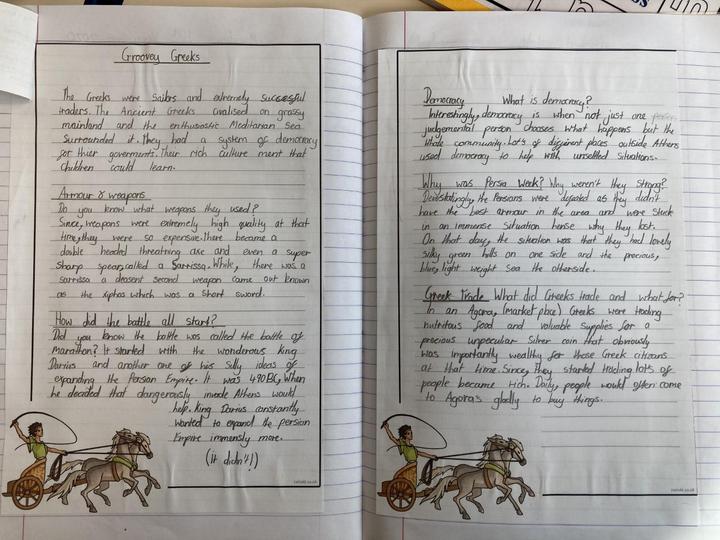 Groovey Greeks
The Greeks were Sailors and extremely successful
traders. The Ancient Greeks civalised on grassy
mainland and the enthusiastic Meditarian Sea
Surrounded it. They had a system of democracy
for thier goverments. Their rich culture ment that
Children could learn.
Armour & weapons
Do you know what weapons they used?
Since, weapons were extremely high quality at that
time, they were so expensive. there became a
double headed threatning axe and even a super
Sharp spear, called a Sarrissa. While, there was a
sarrissa a deasent second weapon came out known
as the Xiphos which was a short sword.
How did the battle all start?
Did you know the battle was called the battle of
Marathon? It started with the wonderous King
Darius and another one of his silly ideas of
expanding the Persian Empire. It was 490BC, When
he decided that dangerously invade Athens would
help. King Darius constantly
wanted to expand the persian
Empire immensly more.
(it didn't!)
twinkl.co.uk
Democracy What is democracy?
Interestingly, democracy is when not just one
judgemental person chooses what happens but the
Whole community. Lots of different places outside Athens
used democracy to help with unsettled situations.
Why was Persia Week? Why weren't they strong?
Devistatingly, the Persians were defeated as they didn't
have the best armour in the area and were stuck
in an immense situation hense why they lost.
On that day, the situation was that they had lovely
silky green hills on one side and the precious,
blue, light weight sea the otherside.
Greek Trade What did Greeks trade and what for?
In an Agora, (market place) Greeks were trading
nutritous food and valuable supplies for a
precious unpecular Silver coin that obviously
was importantly wealthy for those Greek citizens
at that time. Since, they started trading lots of
people became rich. Daily, people would often come
to Agoras gladly to buy things.
twinkl.co.uk